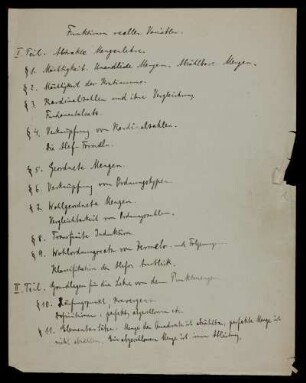 Funktionen reeller Variablen.
I Teil. Abstrakte Mengenlehre.
§ 1. Mächtigkeit. Unendliche Mengen. Abzählbare Mengen.
§ 2. Mächtigkeit des Kontinuums.
§ 3 Kardinalzahlen und ihre Vergleichung
Fundamentalsatz.
§ 4. Verknüpfung von Kardinalzahlen.
Die Alef-
§ 5. Geordnete Mengen
§ 6 Verknüpfung von Ordnungstypen.
§ 7. Wohlgeordnete Mengen.
Vergleichbarkeit von Ordnungszahlen.
§ 8. Transfinite Induktion
§ 9. Wohlordnungssatz von Zermelo und Folgerung
Klassifikation der Alefs.
II Teil. Grundlagen für die Lehre von den Punktmengen
§ 10. Häufungspunkt, Konvergenz.
Definitionen: perfekt, abgeschlossen etc.
§ 11. Elementare Sätze. Menge der ist abzählbar, perfekte Menge ist
nicht abzählbar. abgeschlossene Menge ist